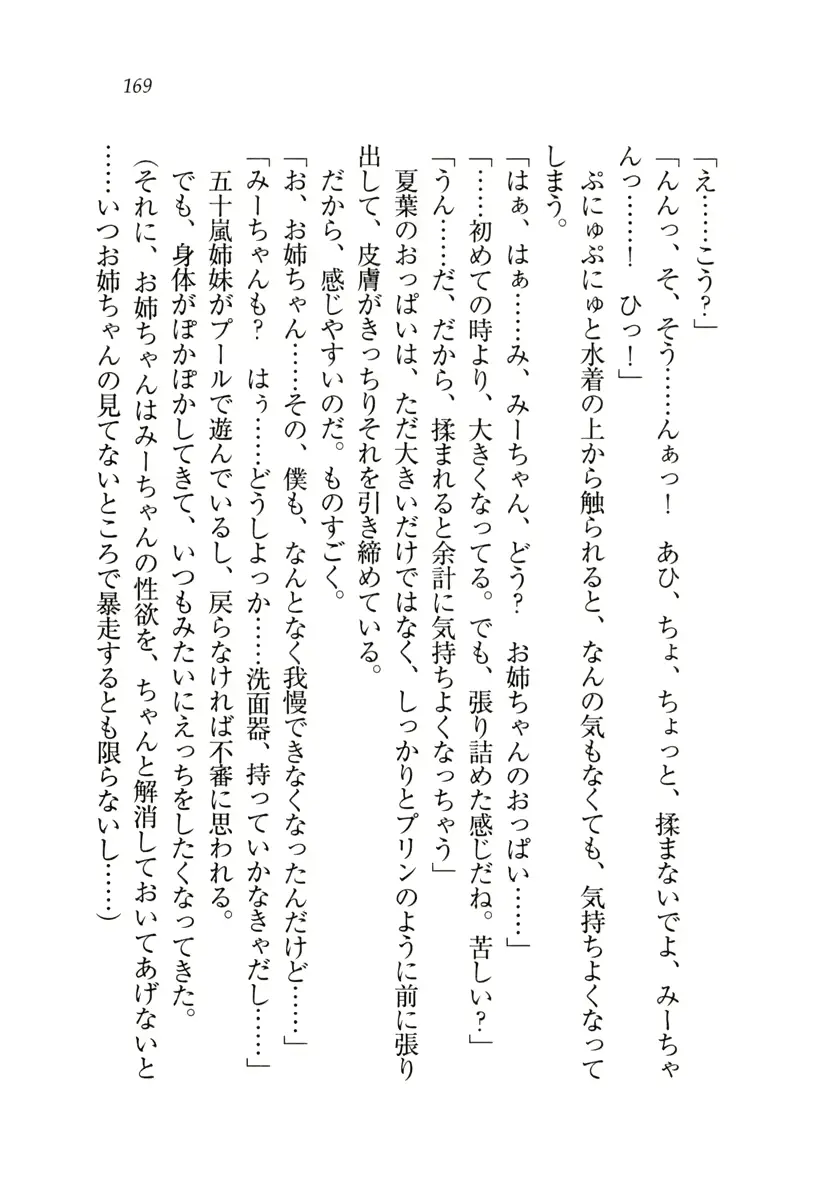 169
「え……こう？」
「んんっ、そ、そう……んぁっ！　あひ、ちょ、ちょっと、揉まないでよ、みーちゃ
んっ……！　ひっ！」
ぷにゅぷにゅと水着の上から触られると、なんの気もなくても、気持ちよくなって
しまう。
「はぁ、はぁ……み、みーちゃん、どう？　お姉ちゃんのおっぱい……」
「……初めての時より、大きくなってる。でも、張り詰めた感じだね。苦しい？」
「うん……だ、だから、揉まれると余計に気持ちよくなっちゃう」
夏葉のおっぱいは、ただ大きいだけではなく、しっかりとプリンのように前に張り
出して、皮膚がきっちりそれを引き締めている。
だから、感じやすいのだ。ものすごく。
「お、お姉ちゃん……その、僕も、なんとなく我慢できなくなったんだけど……」
「みーちゃんも？　はぅ……どうしよっか……洗面器、持っていかなきゃだし……」
五十嵐姉妹がプールで遊んでいるし、戻らなければ不審に思われる。
でも、身体がぽかぽかしてきて、いつもみたいにえっちをしたくなってきた。
（それに、お姉ちゃんはみーちゃんの性欲を、ちゃんと解消しておいてあげないと
……いつお姉ちゃんの見てないところで暴走するとも限らないし……）